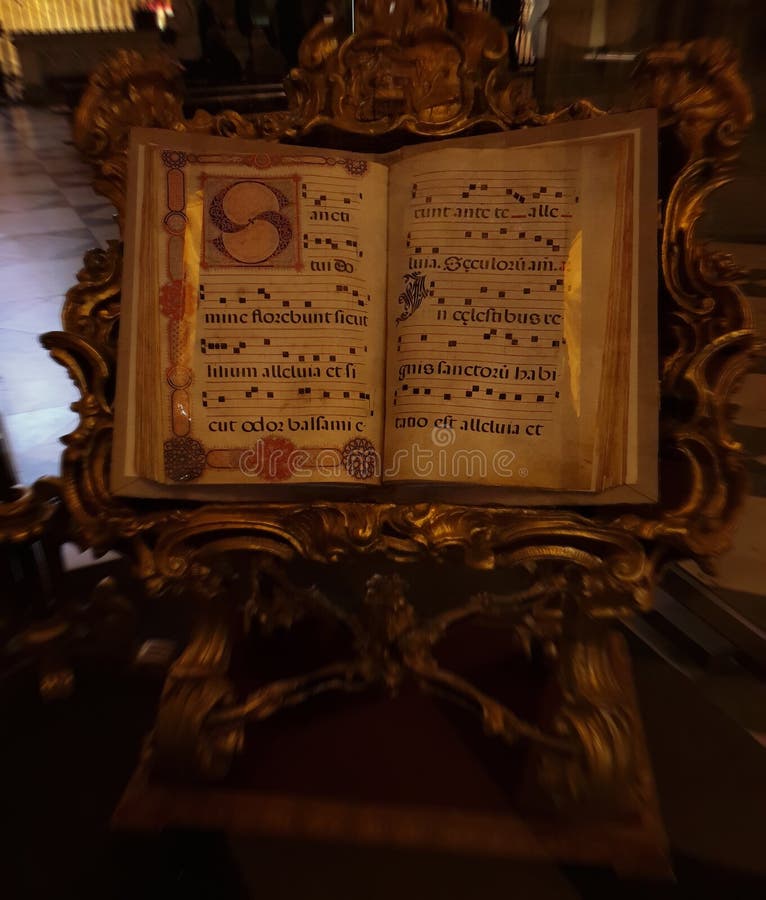 Sancti
tui do
mine florebunt sicut
lilium alleluia et si
cut odor balsami e
runt ante te alle
luia. Sęculorū am.
In cęlestibus re
gnis sanctorū habi
tatio est alleluia et
dreamstime